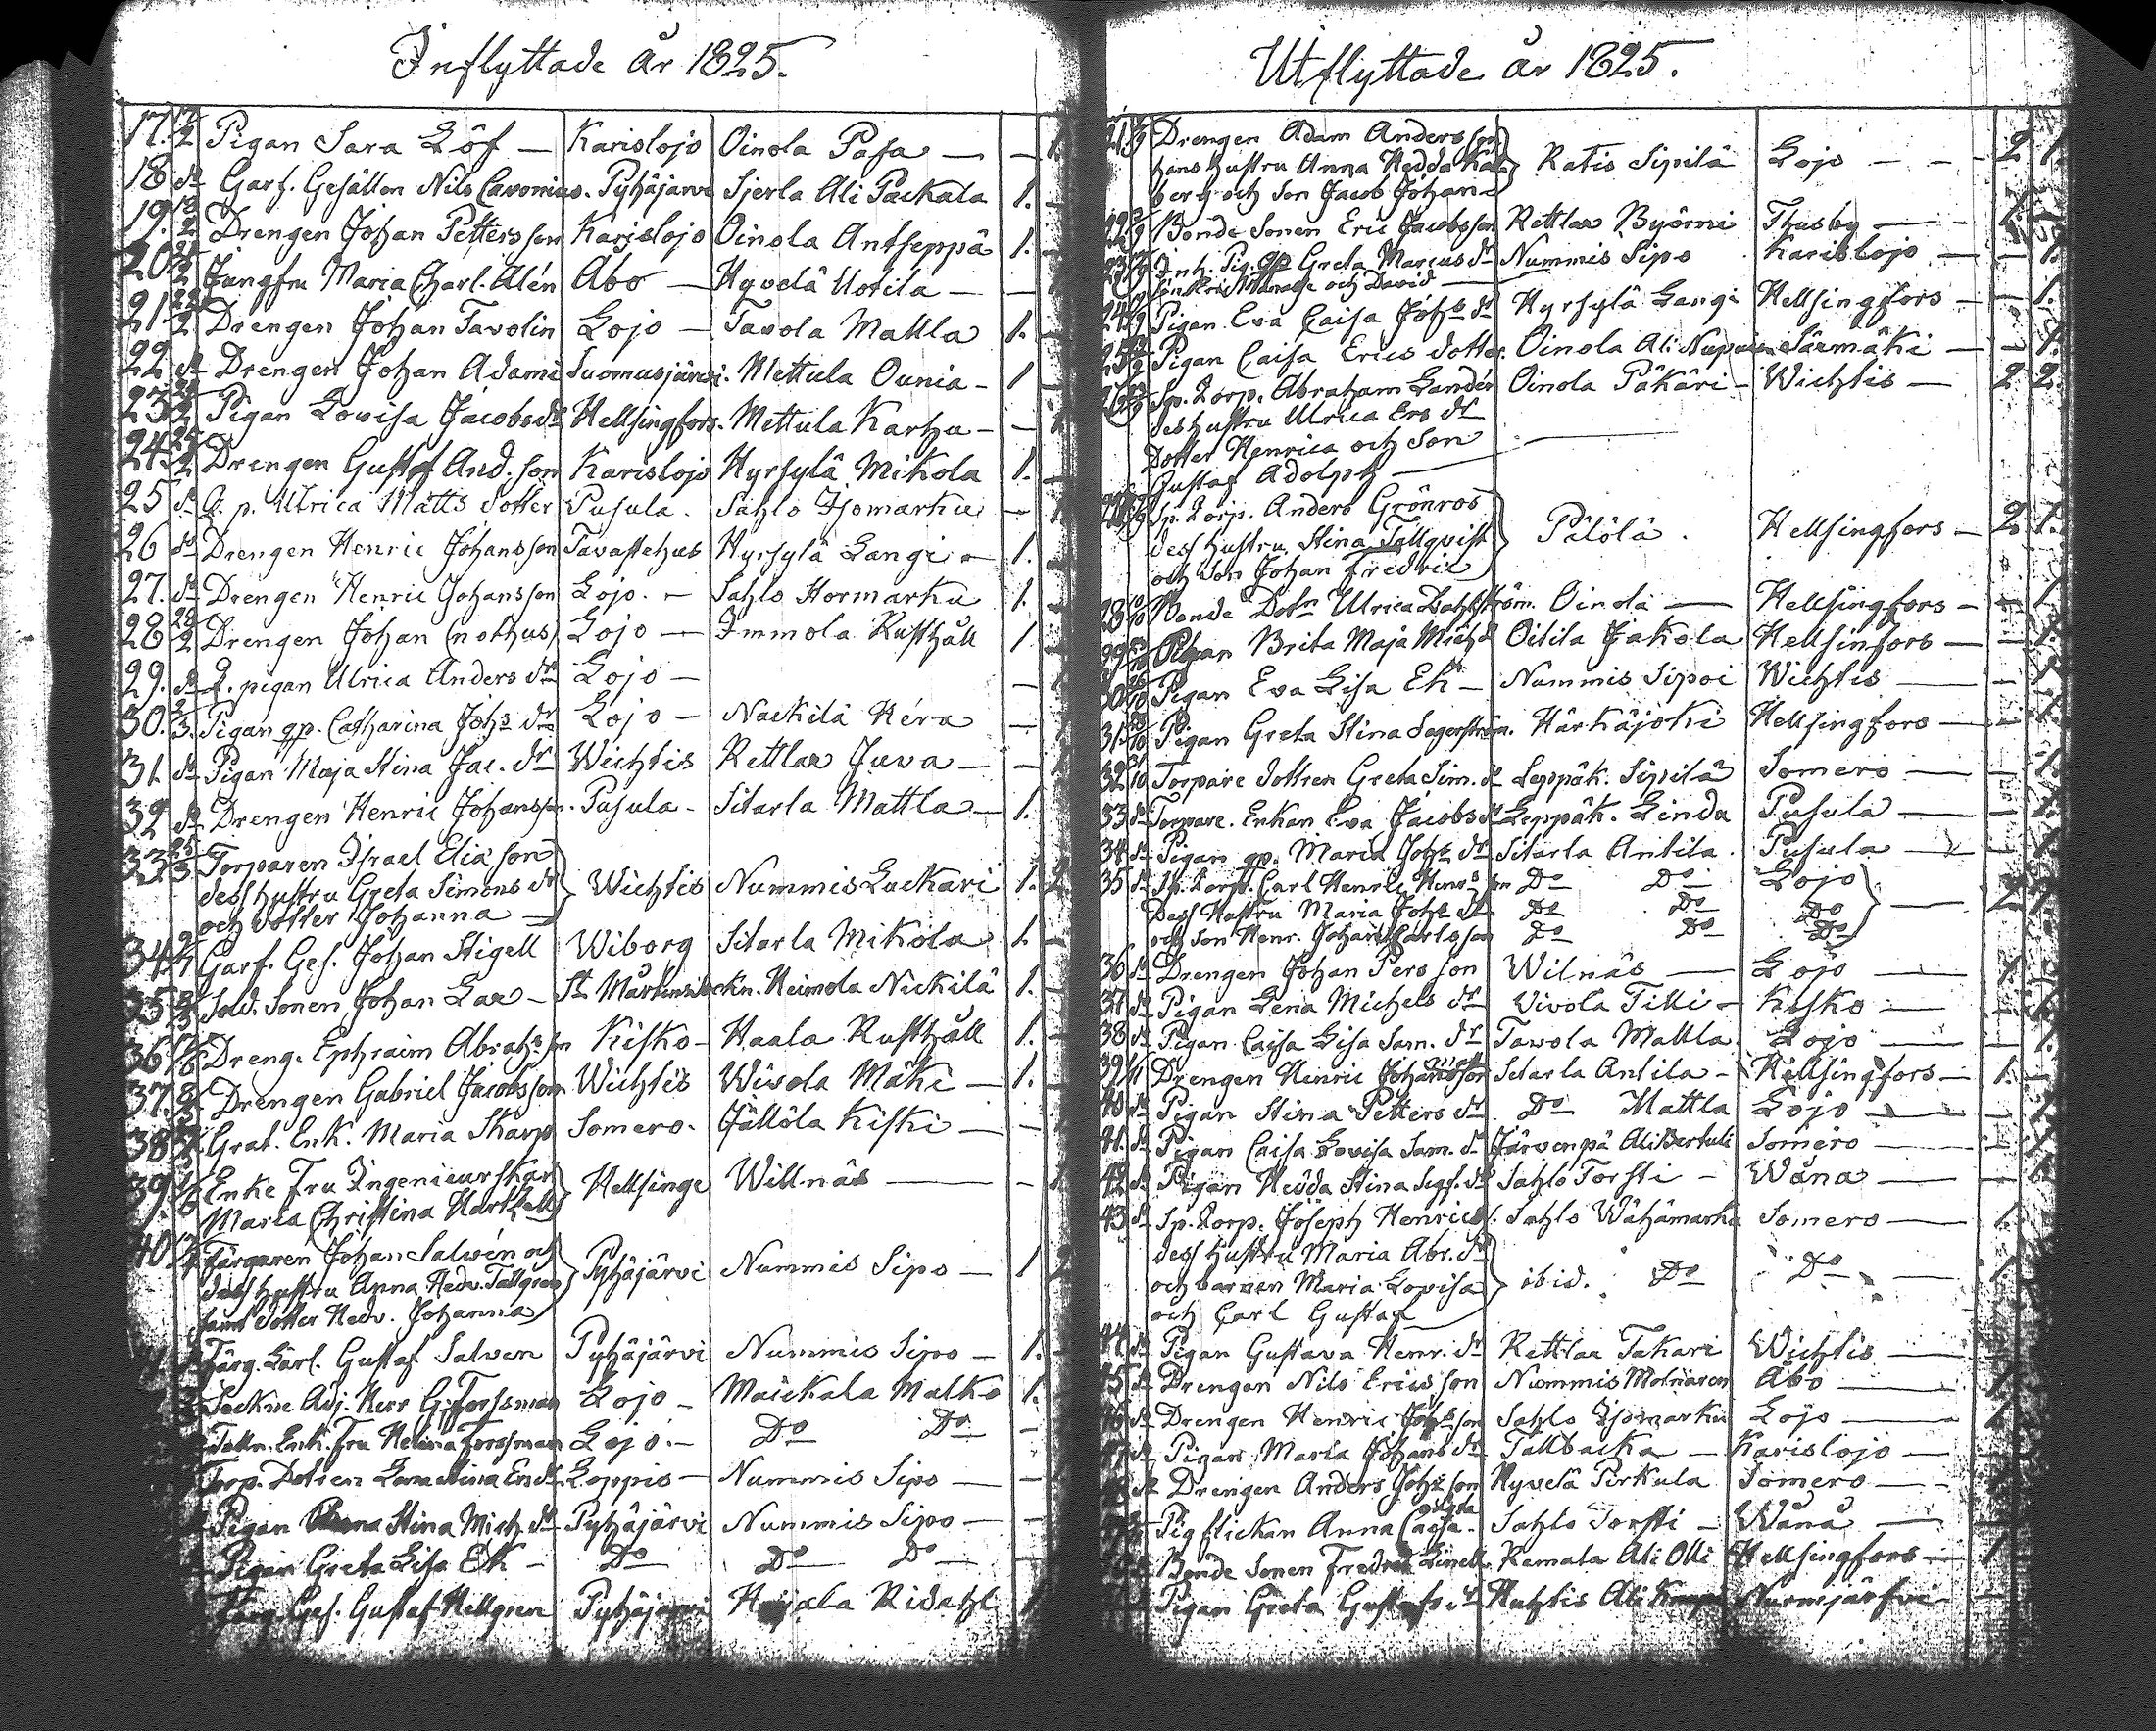 Inflyttade år 1825.
17. 17/2 Pigan Sara Löf — Karislojo Oinola Pafa — — 1.
18 do Garf. Gesällen Nils Cavonius. Pyhäjärvi Sjerla Ali Packala 1. —
19. 18/2 Drengen Johan Pettersson Karislojo Oinola Antseppä 1. —
20 Jungfru Maria Charl. Alén Åbo — Hyvelä Uotila — —
21 Drengen Johan Tavolin Lojo — Tavola Mattla 1. —
22 do Drengen Johan Adami Suomusjärvi. Mettula Ounia — 1
23 Pigan Lovisa Jacobsdr Hellsingfors. Mettula Karhu — —
24 Drengen Gustaf And.son Karislojo Hyrsylä Mikola 1. —
25 do Q. p. Ulrica Matts dotter Pusula. Sahlo Isomarku —
26 do Drengen Henric Johansson Tavastehus Hyrsylä Langi — 1.
27. do Drengen Henric Johansson Lojo. — Sahlo Hormarku 1. —
28 28/2 Drengen Johan (nothus) Lojo — Immola Rusthåll 1
29. do Q. pigan Ulrica Anders dr Lojo — —
30. Pigan gp. Catharina Johs dr Lojo — Nackilä Héra —
31. do Pigan Maja Stina Jac. dr Wichtis Rettlax Juva — —
32 do Drengen Henric Johansson. Pusula — Sitarla Mattla — 1.
33 25/3 Torparen Israel Elia son
dess hustru Greta Simons dr Wichtis Nummis Luckari 1. 2
och dotter Johanna —
34 Garf. Ges. Johan Stigell Wiborg Sitarla Mikola 1. —
35 Sold. Sonen Johan Lax — St Mårtens Sockn. Heimola Nickilä 1. —
36 Dreng. Ephraim Abrahs son Kisko — Haala Rusthåll 1. —
37. Drengen Gabriel Jacobsson Wichtis Wivola Mäki — 1. —
38 Grat. Enk. Maria Skarp Somero. Jällölä Kiski — —
39. Enke Fru Ingenieurskan
Maria Christina Hartzell Hellsinge Willnäs — —
40 Färgaren Johan Salvén och
dess hustru Anna Hedv. Tallgren Pyhäjärvi Nummis Sipo — 1 2
samt dotter Hedv. Johanna
Färg. Lärl. Gustaf Salven Pyhäjärvi Nummis Sipo — 1. —
Sockne Adj. Herr G. Forssman Lojo — Maickala Malko 1.
Enk. Fru Helena Forssman Lojo. — Do Do —
Torp. Dotren Lena Stina Er. dr Loppis — Nummis Sipo — —
Pigan Stina Mich. dr Pyhäjärvi Nummis Sipo — —
Pigan Greta Lisa Ek — Do Do Do —
Färg. Ges. Gustaf Hellgren Pyhäjärvi Ridahl
Utflyttade år 1825.
21 Drengen Adam Andersson
hans hustru Anna Hedda Käl- Ratis Sipilä Lojo — — — 2 1.
berg och Son Jacob Johan
22 Bonde Sonen Eric Jacobsson Rettlax Byörni Thusby — — 1.
23 Inh. Pig. gp Greta Marcus dr Nummis Sipo Karislojo — — 1.
och David —
24 Pigan Eva Caisa Johs dr Hyrsylä Langi Hellsingfors — — 1.
25 Pigan Caisa Erics dotter. Oinola Ali Särmäki — — 1.
26 Sp. Torp. Abraham Landén Oinola Päkäri — Wichtis — 2 2.
des hustru Ulrica Ers dr
Dotter Henrica och Son —
Gustaf Adolph —
27 Sp. Torp. Anders Grönros
dess hustru Stina Tallqvist Pälölä. Hellsingfors — 2 1.
och Son Johan Fredric
28 Bonde Dotn Ulrica Dahlström. Oinola — Hellsingfors — — 1
29 Pigan Brita Maja Mich dr Oitila Jakola Hellsinfors — — 1.
30 Pigan Eva Lisa Ek — Nummis Sipoi Wichtis — — 1
31 Pigan Greta Stina Lagerström. Härkäjoki Hellsingfors — — 1.
32 Torpare dottren Greta Sim. dr Leppäk. Sipilä Somero — — 1.
33 do Torpare. Enkan Eva Jacobs dr Leppäk. Linda Pusula — — 1.
34 do Pigan gp. Maria Johs dr Sitarla Antila. Pusula — — 1
35 do Sp. Torp. Carl Henric Henrs son Do Do Lojo
Dess Hustru Maria Johs dr Do Do Do — 2 1.
och Son Henr. Johan Carlsson Do Do Do
36 do Drengen Johan Persson Wilnäs — Lojo — 1. —
37 do Pigan Lena Michels dr Wivola Tilli — Kisko — — 1.
38 do Pigan Caisa Lisa Sam. dr Tavola Mattla Lojo — — 1.
39 Drengen Henric Johansson Sitarla Antila — Hellsingfors — 1. —
40 do Pigan Stina Petters dr. Do Mattla Lojo — — 1
41. do Pigan Caisa Lovisa Sam. dr Järvenpä Ali Bertuli Somero — — 1.
42 do Pigan Hedda Stina Sigf. dr Sahlo Torsti — Wåna — — 1.
43 do Sp. Torp. Joseph Henrics s. Sahlo Wähämarku Somero — 1.
dess hustru Maria Abr. dr
och barnen Maria Lovisa ibid. Do Do —
och Carl Gustaf —
44 do Pigan Gustava Henr. dr Rettlax Takari Wichtis —
45 do Drengen Nils Ericsson Nummis Molnären Åbo — 1
46 do Drengen Henric Johs son Sahlo Isomarku Lojo — 1
47 do Pigan Maria Johans dr Tallbacka — Karislojo —
Drengen Anders Johs son Hyvelä Pirkula Somero —
Pigflickan Anna Caisa. Sahlo Torsti — Wånå —
Bonde Sonen Fredric Linell Remala Ali Olli Hellsingfors — 1
Pigan Greta Gustafs dr Huhtis Ali Nurmijärfvi —